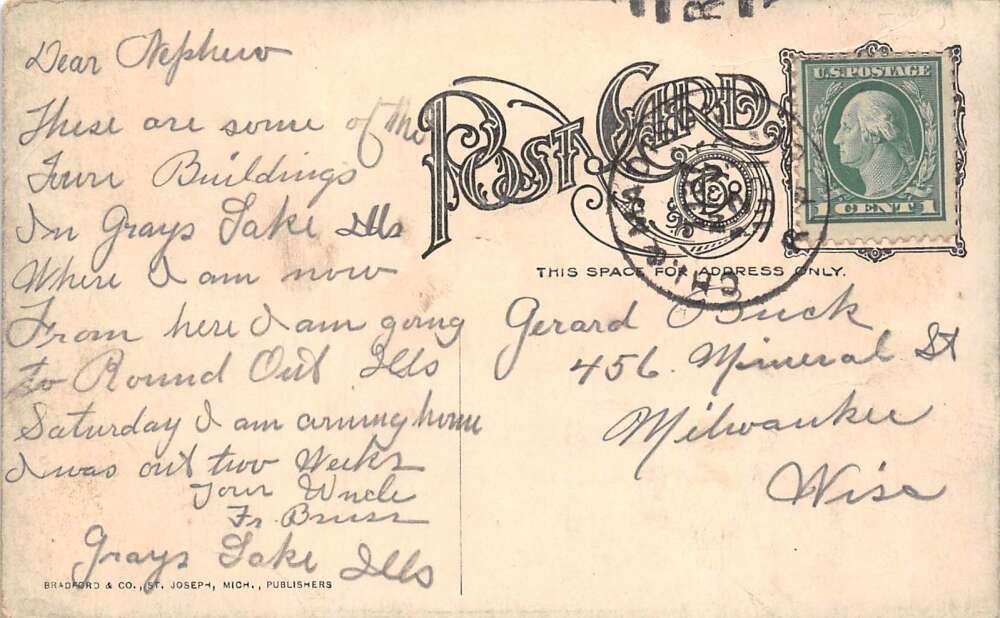 Dear Nephew
These are some of the
Town Buildings
In Grays Lake Ills
Where I am now
From here I am going
to Round Out Ills
Saturday I am coming home
I was out two Weeks
Your Uncle
Fr.
Grays Lake Ills
BRADFORD & CO., ST. JOSEPH, MICH., PUBLISHERS
POST CARD
THIS SPACE FOR ADDRESS ONLY.
U.S. POSTAGE
1 CENT 1
Gerard Buck
456. Mineral St
Milwaukee
Wisc